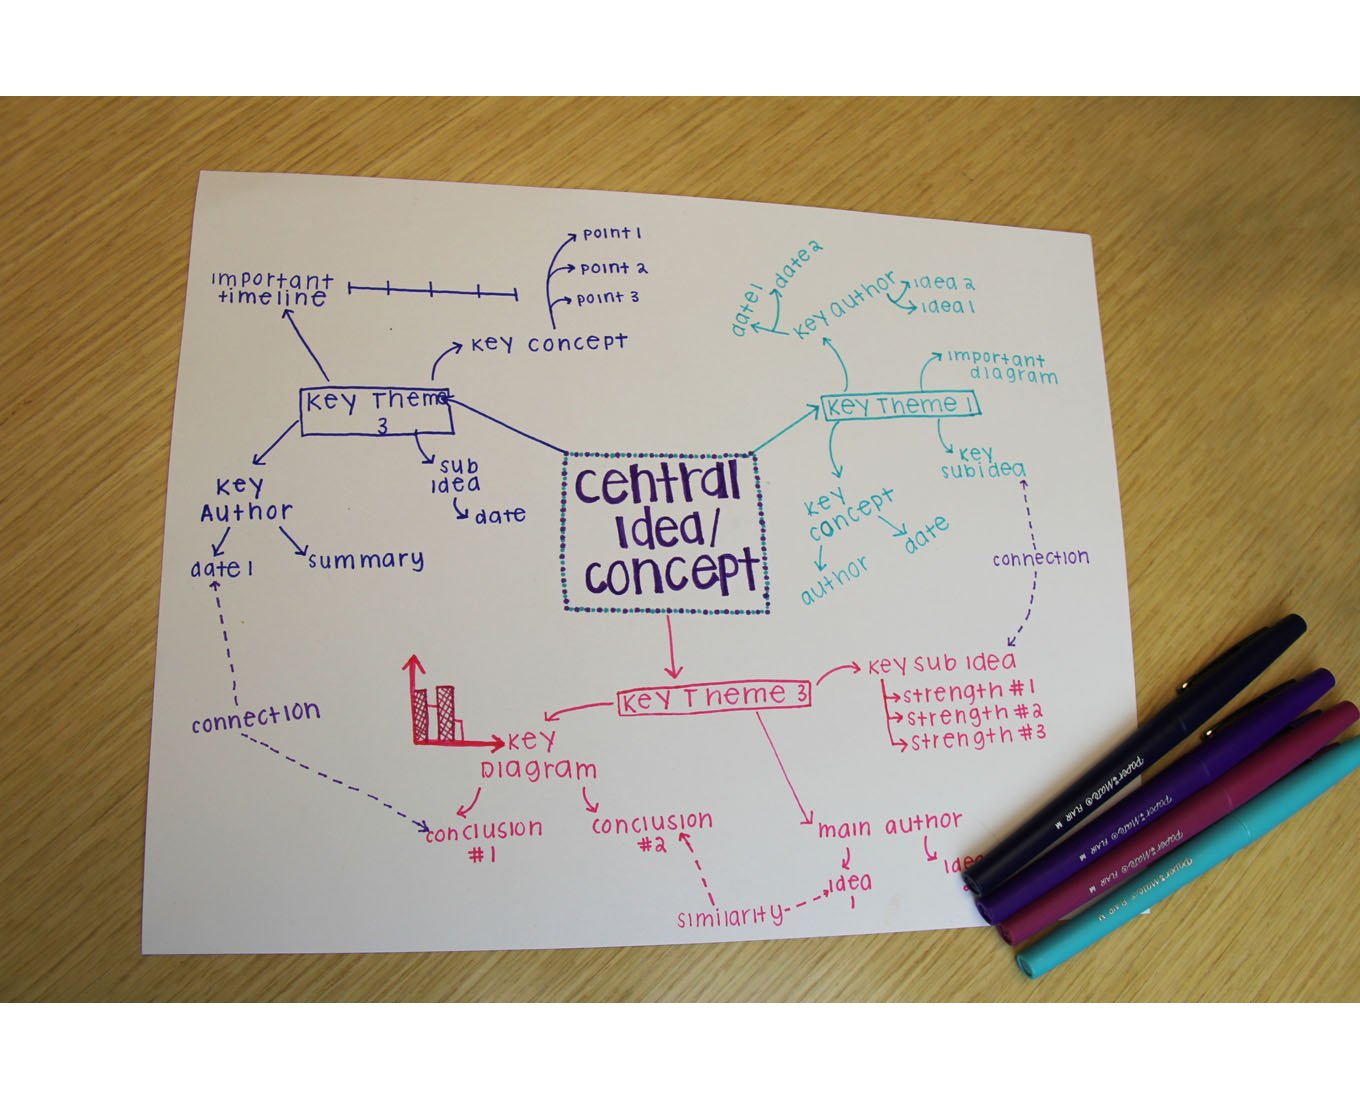 important
timeline
point 1
point 2
point 3
key concept
key Theme
3
key
Author
date 1
summary
sub
idea
date
central
idea/
concept
date 1
date 2
key author
idea 2
idea 1
important
diagram
key Theme 1
key
subidea
key
concept
date
author
connection
key Theme 3
key sub idea
strength #1
strength #2
strength #3
key
Diagram
conclusion
#1
conclusion
#2
main author
idea
1
similarity
connection
Paper Mate FLAIR M
Paper Mate FLAIR M
Paper Mate FLAIR M
Paper Mate FLAIR M